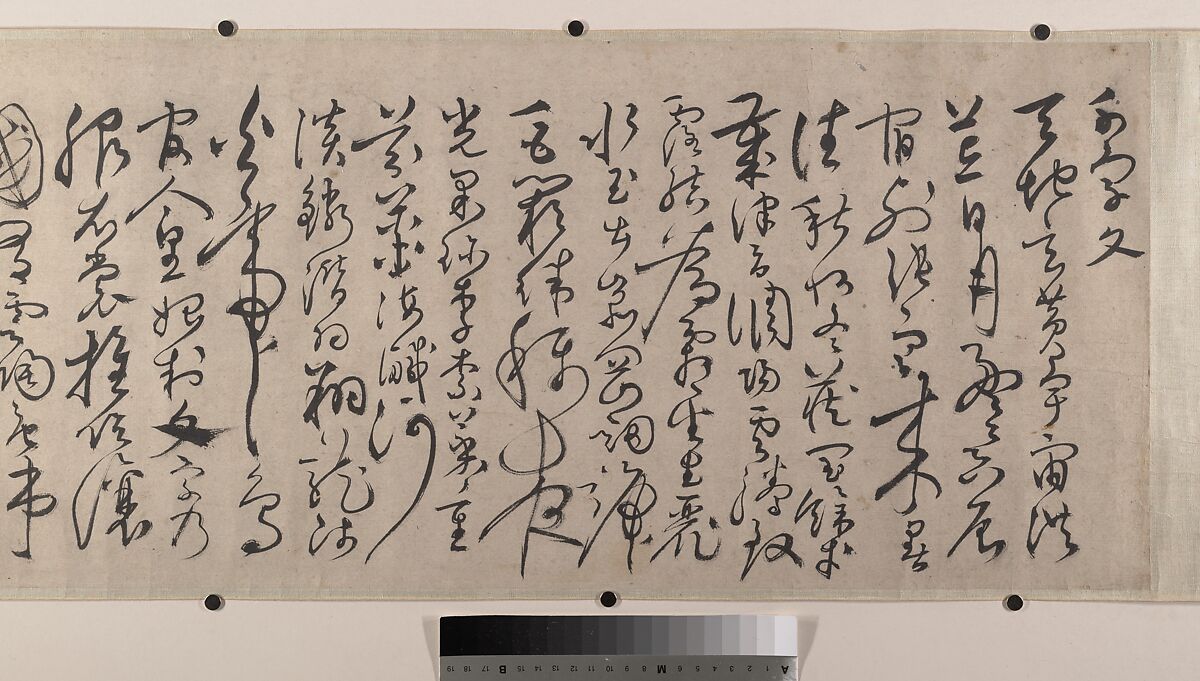 千字文
天地玄黃宇宙洪
荒日月盈昃辰
宿列張寒來暑
往秋收冬藏閏餘成
歲律呂調陽雲騰致
露結為霜金生麗
水玉出崑岡劍號
巨闕珠稱夜
光果珍李柰菜重
芥薑海鹹河
淡鱗潛羽翔龍師
火帝鳥
官人皇始制文字乃
服衣裳推位讓
國有虞陶唐弔
A 1 2 3 4 5 6 M 8 9 10 11 12 13 14 15 B 17 18 19